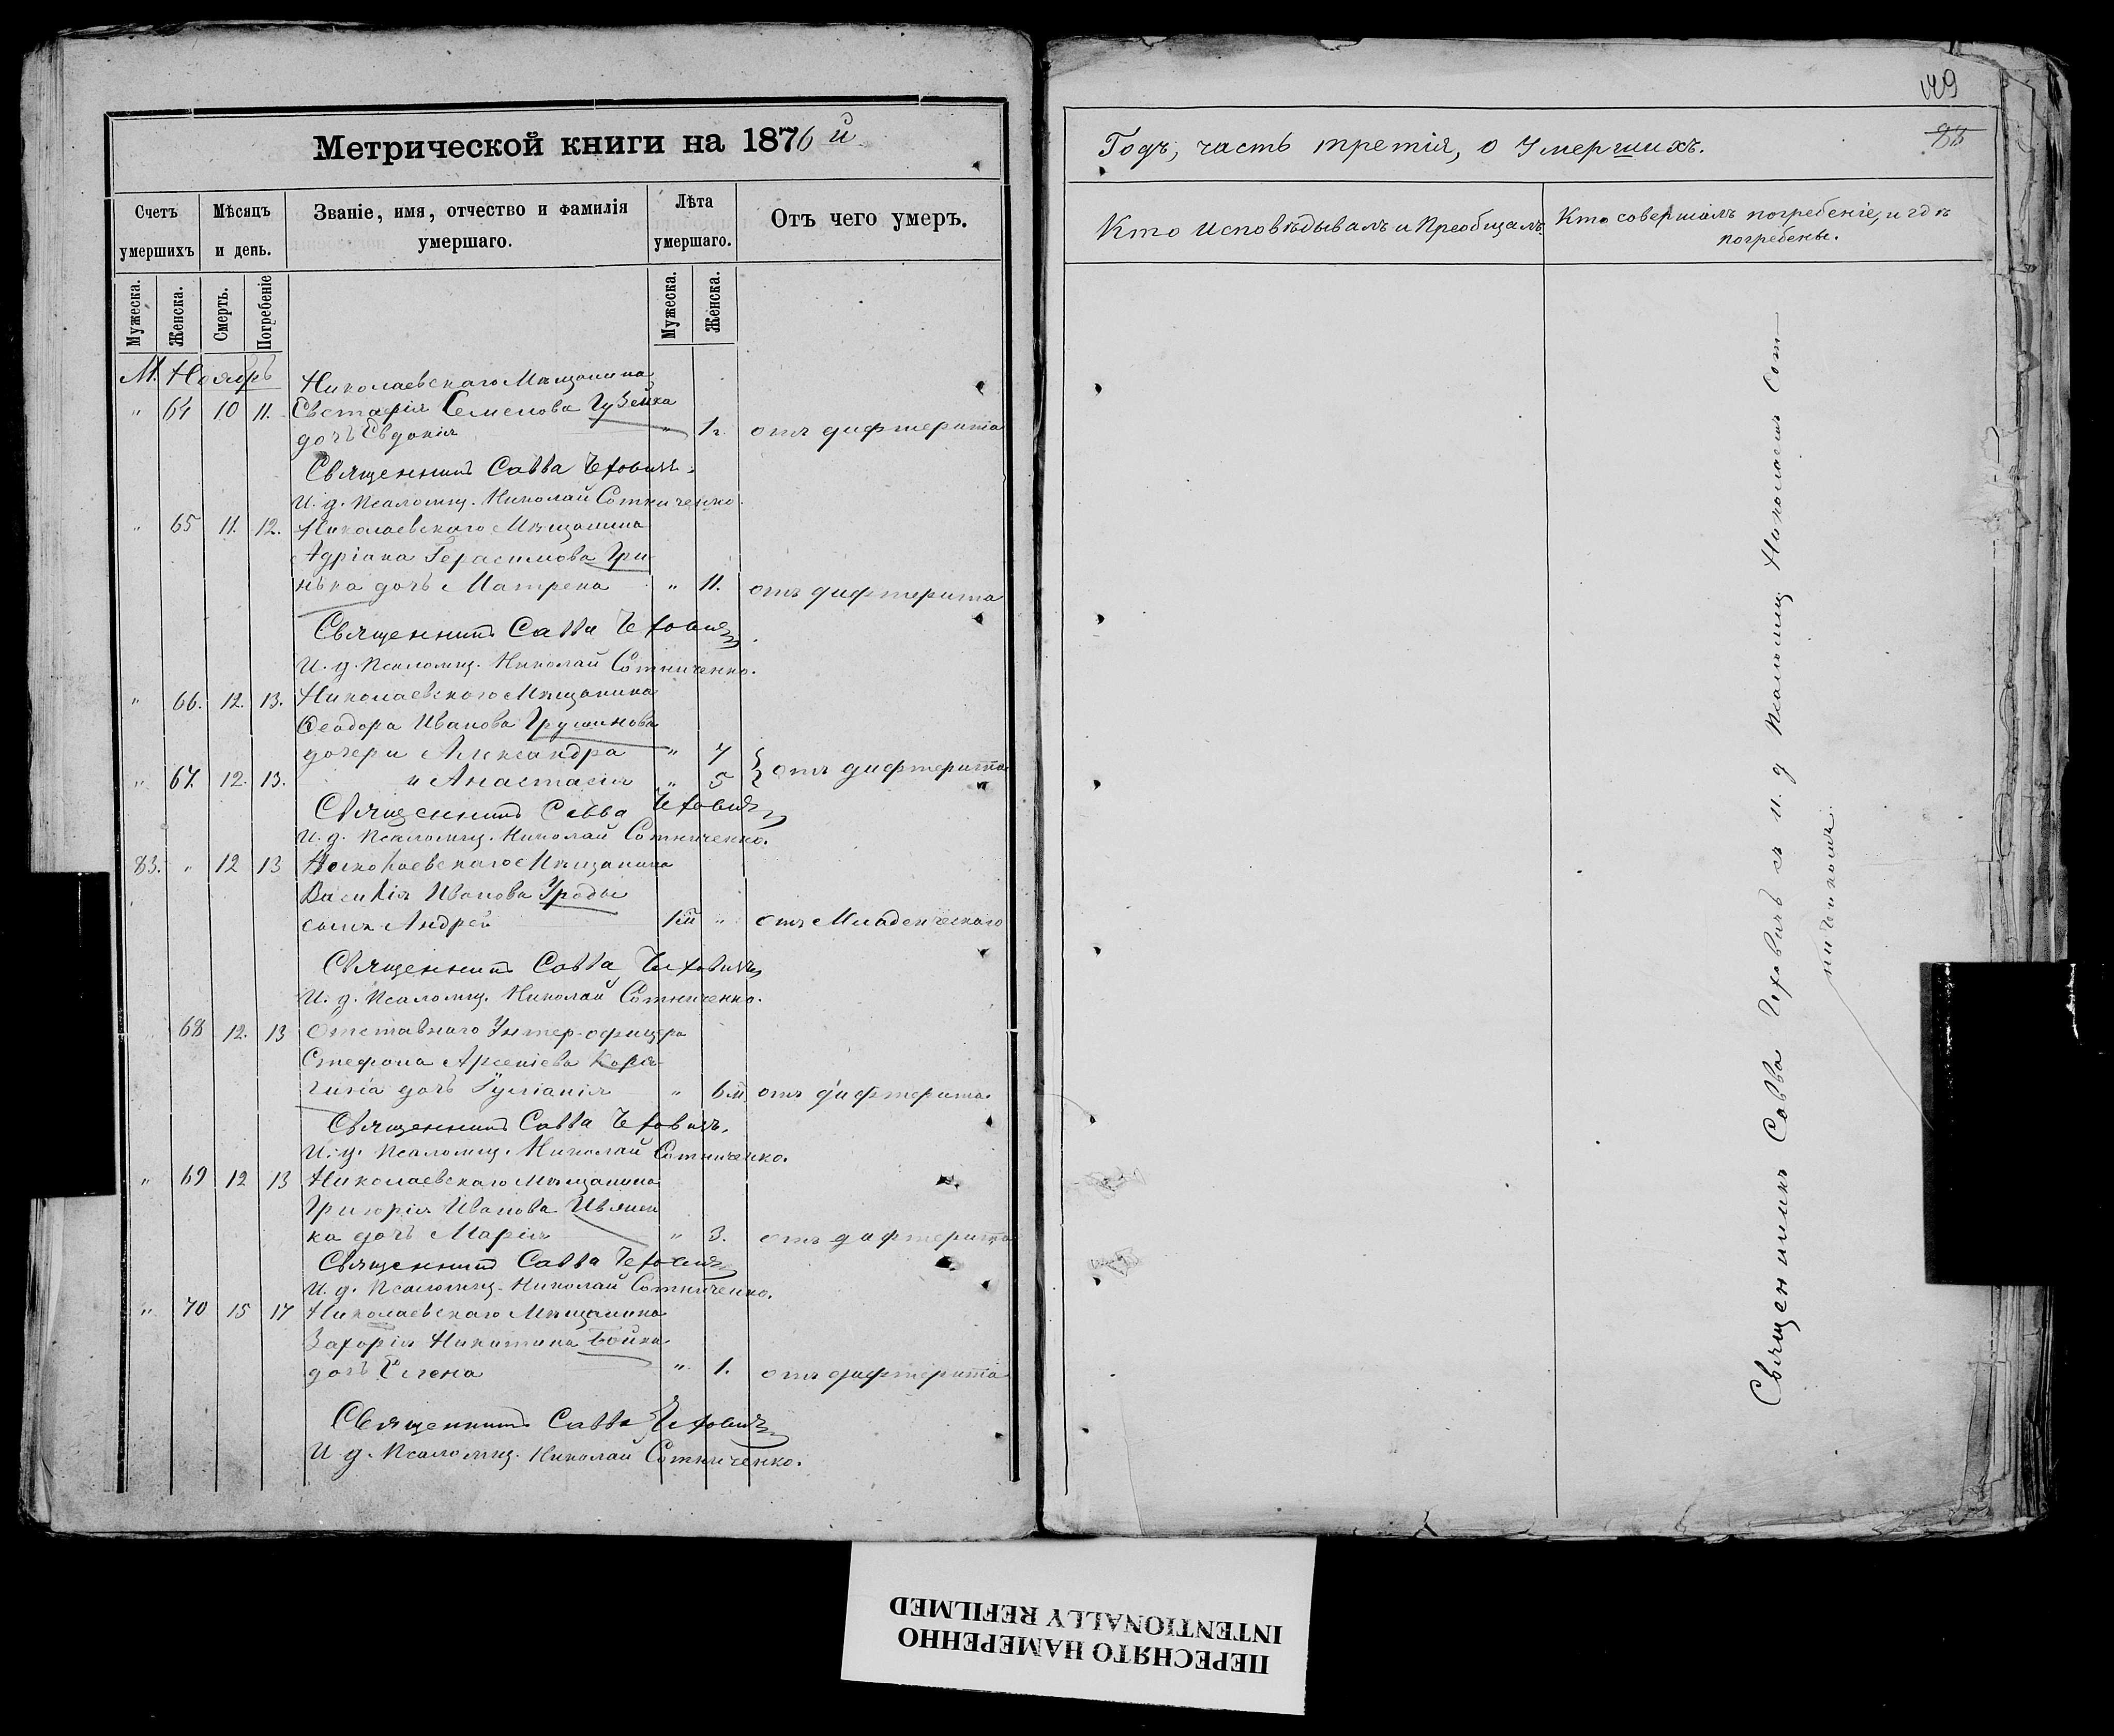 Метрической книги на 1876 й
Счетъ умершихъ
Мѣсяцъ и день.
Званіе, имя, отчество и фамилія умершаго.
Лѣта умершаго.
Отъ чего умеръ.
Мужеска.
Женска.
Смерть.
Погребеніе
Мужеска.
Женска.
М. Ноябрь
Николаевскаго Мѣщанина
" 64 10 11. Евстафія Семенова Гузейка
дочь Евдокія " 1г. отъ дифтерита
Священникъ Савва Чеховичъ.
И. д. Псаломщ. Николай Сотниченко.
" 65 11. 12. Николаевскаго Мѣщанина
Адріана Герасимова Гри-
нька дочь Матрена " 11. отъ дифтерита
Священникъ Савва Чеховичъ.
И. д. Псаломщ. Николай Сотниченко.
" 66. 12. 13. Николаевскаго Мѣщанина
Ѳеодора Иванова
дочери Александра " 7
" 67. 12. 13. и Анастасія " 5 отъ дифтерита
Священникъ Савва Чеховичъ
И. д. Псаломщ. Николай Сотниченко.
83. " 12 13 Николаевскаго Мѣщанина
Василія Иванова
сынъ Андрей " отъ Младенческаго
Священникъ Савва Чеховичъ
И. д. Псаломщ. Николай Сотниченко.
68 12. 13 Отставнаго Унтер-офицера
Стефана Арсеніева
дочь " 6м отъ дифтерита.
Священникъ Савва Чеховичъ.
И. д. Псаломщ. Николай Сотниченко.
" 69 12 13 Николаевскаго Мѣщанина
Григорія Иванова
ка дочь Марія " 3. отъ дифтерита
Священникъ Савва Чеховичъ
И. д. Псаломщ. Николай Сотниченко.
" 70 15 17 Николаевскаго Мѣщанина
Захарія Никитина Бойка
дочь Елена " 1. отъ дифтерита
Священникъ Савва Чеховичъ
И. д. Псаломщ. Николай Сотниченко.
Годъ, часть третія, о Умершихъ.
Кто Исповѣдывалъ и Преобщалъ.
Кто совершалъ погребеніе, и гдѣ
погребены.
Священникъ Савва Чеховичъ съ и. д Псаломщ Николаемъ Сот
ниченкомъ.
ПЕРЕСНЯТО НАМЕРЕННО
INTENTIONALLY REFILMED